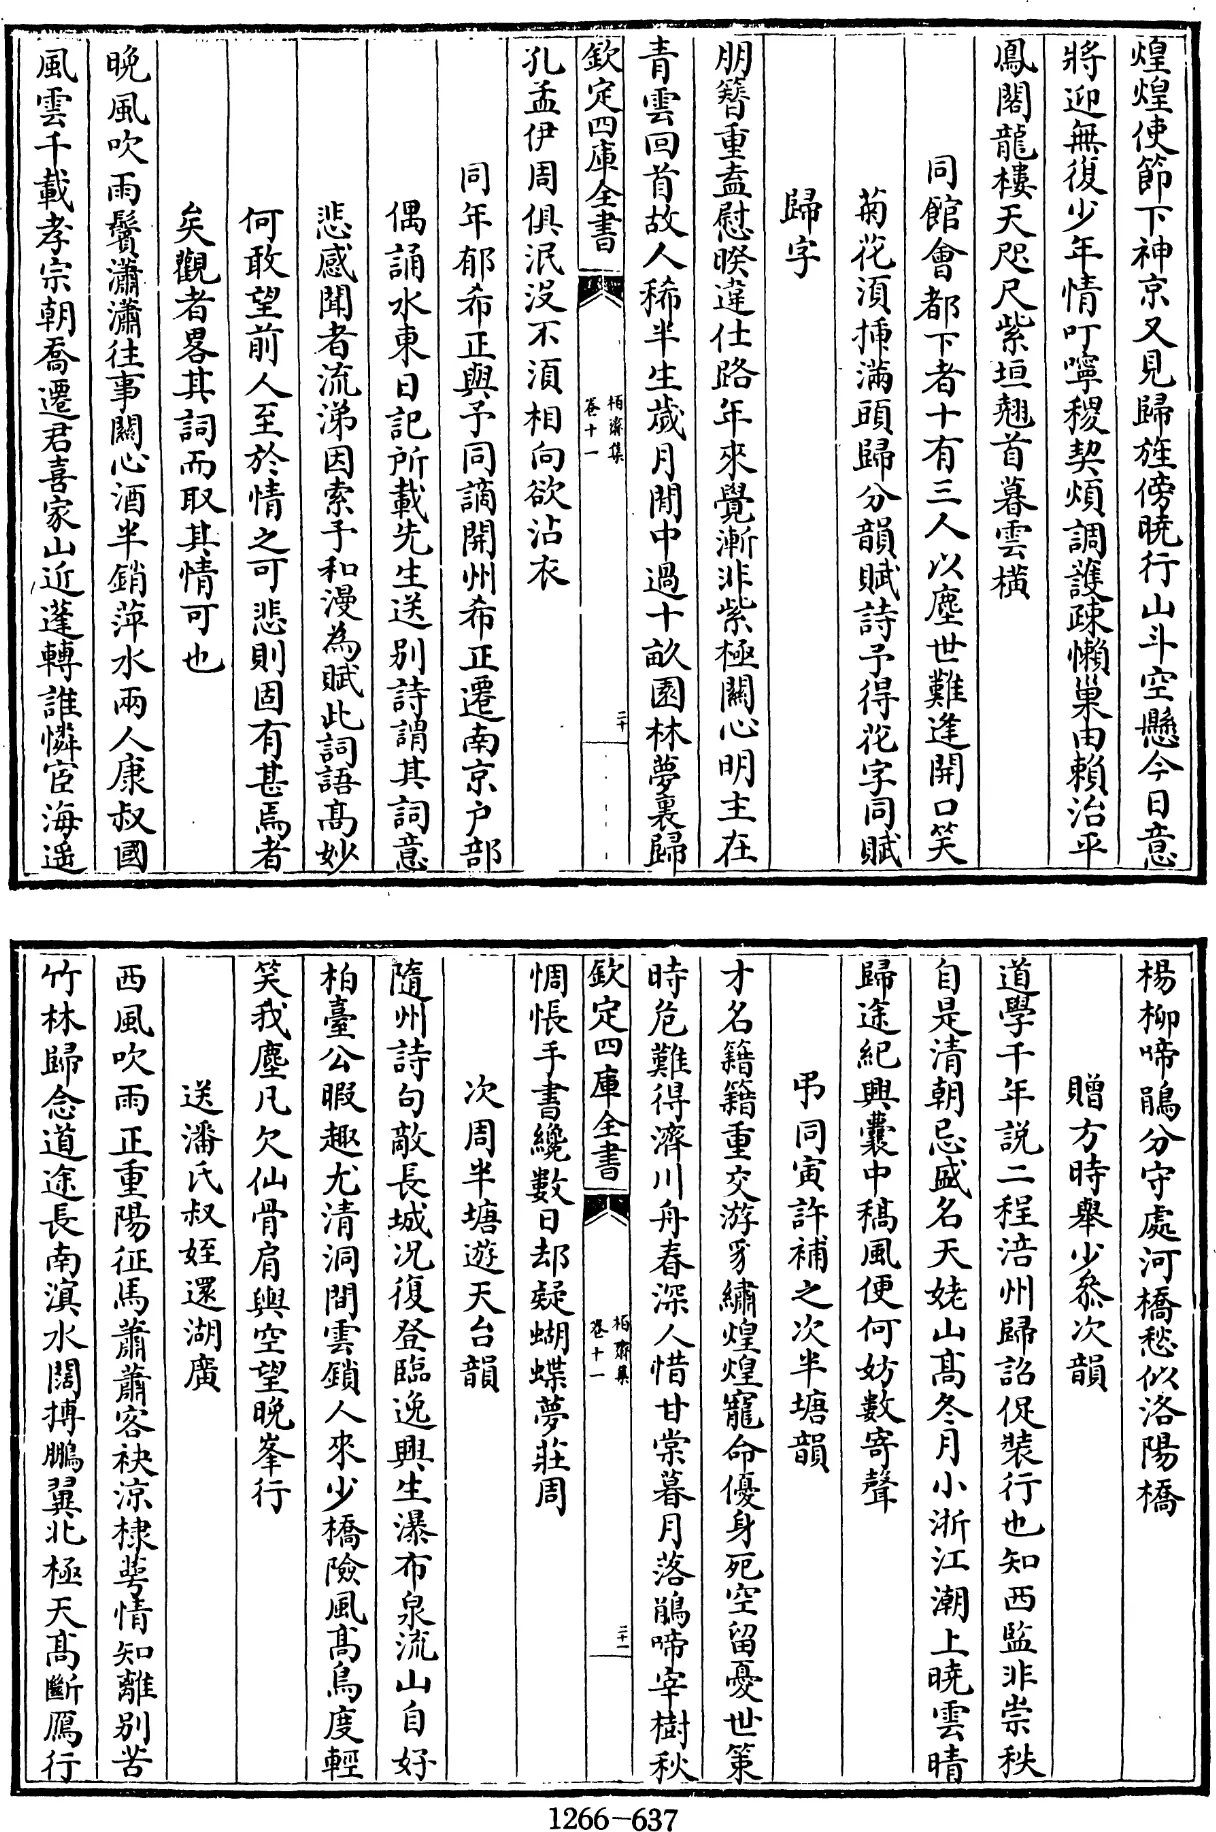 煌煌使節下神京又見歸旌傍曉行山斗空懸今日意
將迎無復少年情叮嚀稷契煩調護疎懶巢由賴治平
鳳閣龍樓天咫尺紫垣翹首暮雲橫
同館會都下者十有三人以塵世難逢開口笑
菊花須揷滿頭歸分韻賦詩予得花字同賦
歸字
朋簪重盍慰暌違仕路年來覺漸非紫極關心明主在
青雲回首故人稀半生歲月閒中過十畝園林夢裏歸
欽定四庫全書
柏齋集
卷十一
二十
孔孟伊周俱泯沒不須相向欲沾衣
同年郁希正與予同謫開州希正遷南京戶部
偶誦水東日記所載先生送别詩謂其詞意
悲感聞者流涕因索予和漫為賦此詞語髙妙
何敢望前人至於情之可悲則固有甚焉者
矣觀者畧其詞而取其情可也
晩風吹雨鬢瀟瀟往事關心酒半銷萍水兩人康叔國
風雲千載孝宗朝喬遷君喜家山近蓬轉誰憐宦海遥
楊柳啼鵑分守處河橋愁似洛陽橋
贈方時舉少叅次韻
道學千年説二程涪州歸詔促裝行也知西監非崇秩
自是清朝忌盛名天姥山髙冬月小浙江潮上曉雲晴
歸途紀興囊中稿風便何妨數寄聲
弔同寅許補之次半塘韻
才名籍籍重交游豸繡煌煌寵命優身死空留憂世策
時危難得濟川舟春深人惜甘棠暮月落鵑啼宰樹秋
欽定四庫全書
柏齋集
卷十一
二十一
惆悵手書纔數日却疑蝴蝶夢莊周
次周半塘遊天台韻
隨州詩句敵長城况復登臨逸興生瀑布泉流山自好
柏臺公暇趣尤清洞間雲鎖人來少橋險風髙鳥度輕
笑我塵凡欠仙骨肩輿空望晩峯行
送潘氏叔姪還湖廣
西風吹雨正重陽征馬蕭蕭客袂涼棣萼情知離别苦
竹林歸念道途長南溟水闊摶鵬翼北極天髙斷鴈行
1266-637